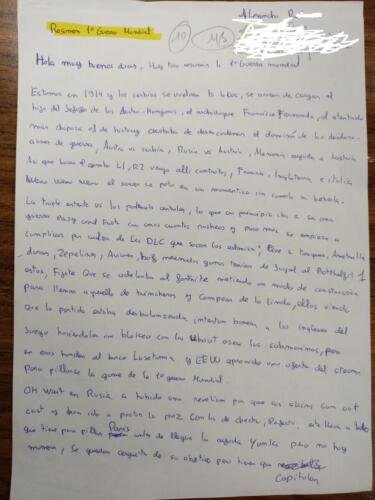 Alejandro
Resumen 1ª Guerra Mundial
10
Hola muy buenos dias, Hoy toca resumir la 1ª Guerra mundial
Estamos en 1914 y los serbios se vuelven to locos, se acaban de cargar al
hijo del Jefazo de los Austro-Hungaros, el archiduque Francisco Fernando, el atentado
mas chapuza de la historia acababa de desencadenar el dominó de las declara-
ciones de guerra, Austria vs serbia, Rusia vs Austria, Alemania
lo que hace el combo L1, R2 venga alli contratos, Francia, Inglaterra e italia
Weno Weno Weno el server se peto en un momentico sin comerlo ni beberlo.
La triple entente vs las potencias centrales, lo que en principio iba a ser una
guerra easy and fast con unos cuantos rusheos y poco mas se empieza a
complicar por culpa de los DLC que sacan los admins; tanques, Ametralla
doras, Zepelines, Aviones, buff menudas ganas tenian de jugar al Battlefield 1
estos, Fijate Que se adelantan al fortnite metiendo un modo de construcción
para llenar aquello de trincheras y campeos de lo lindo, ellos viendo
que la partida estaba desbalanceada, intentan banear a los ingleses del
Juego haciendoles un bloqueo con los Uboot osea los submarinos, pero
en eso hunden el barco Lusitania y EEUU aprovecha una oferta del steam
para pillarse la de la 1ª guerra Mundial
OH Wait en Rusia a habido una revolucion por que los
y han ido a pactar la paz con los de , Perfecto,
que tiene para pillar Paris antes de llegue la ayuda Yanki pero no hay
manera, Se quedan cerquita de su objetivo pero tienen que
Capitular